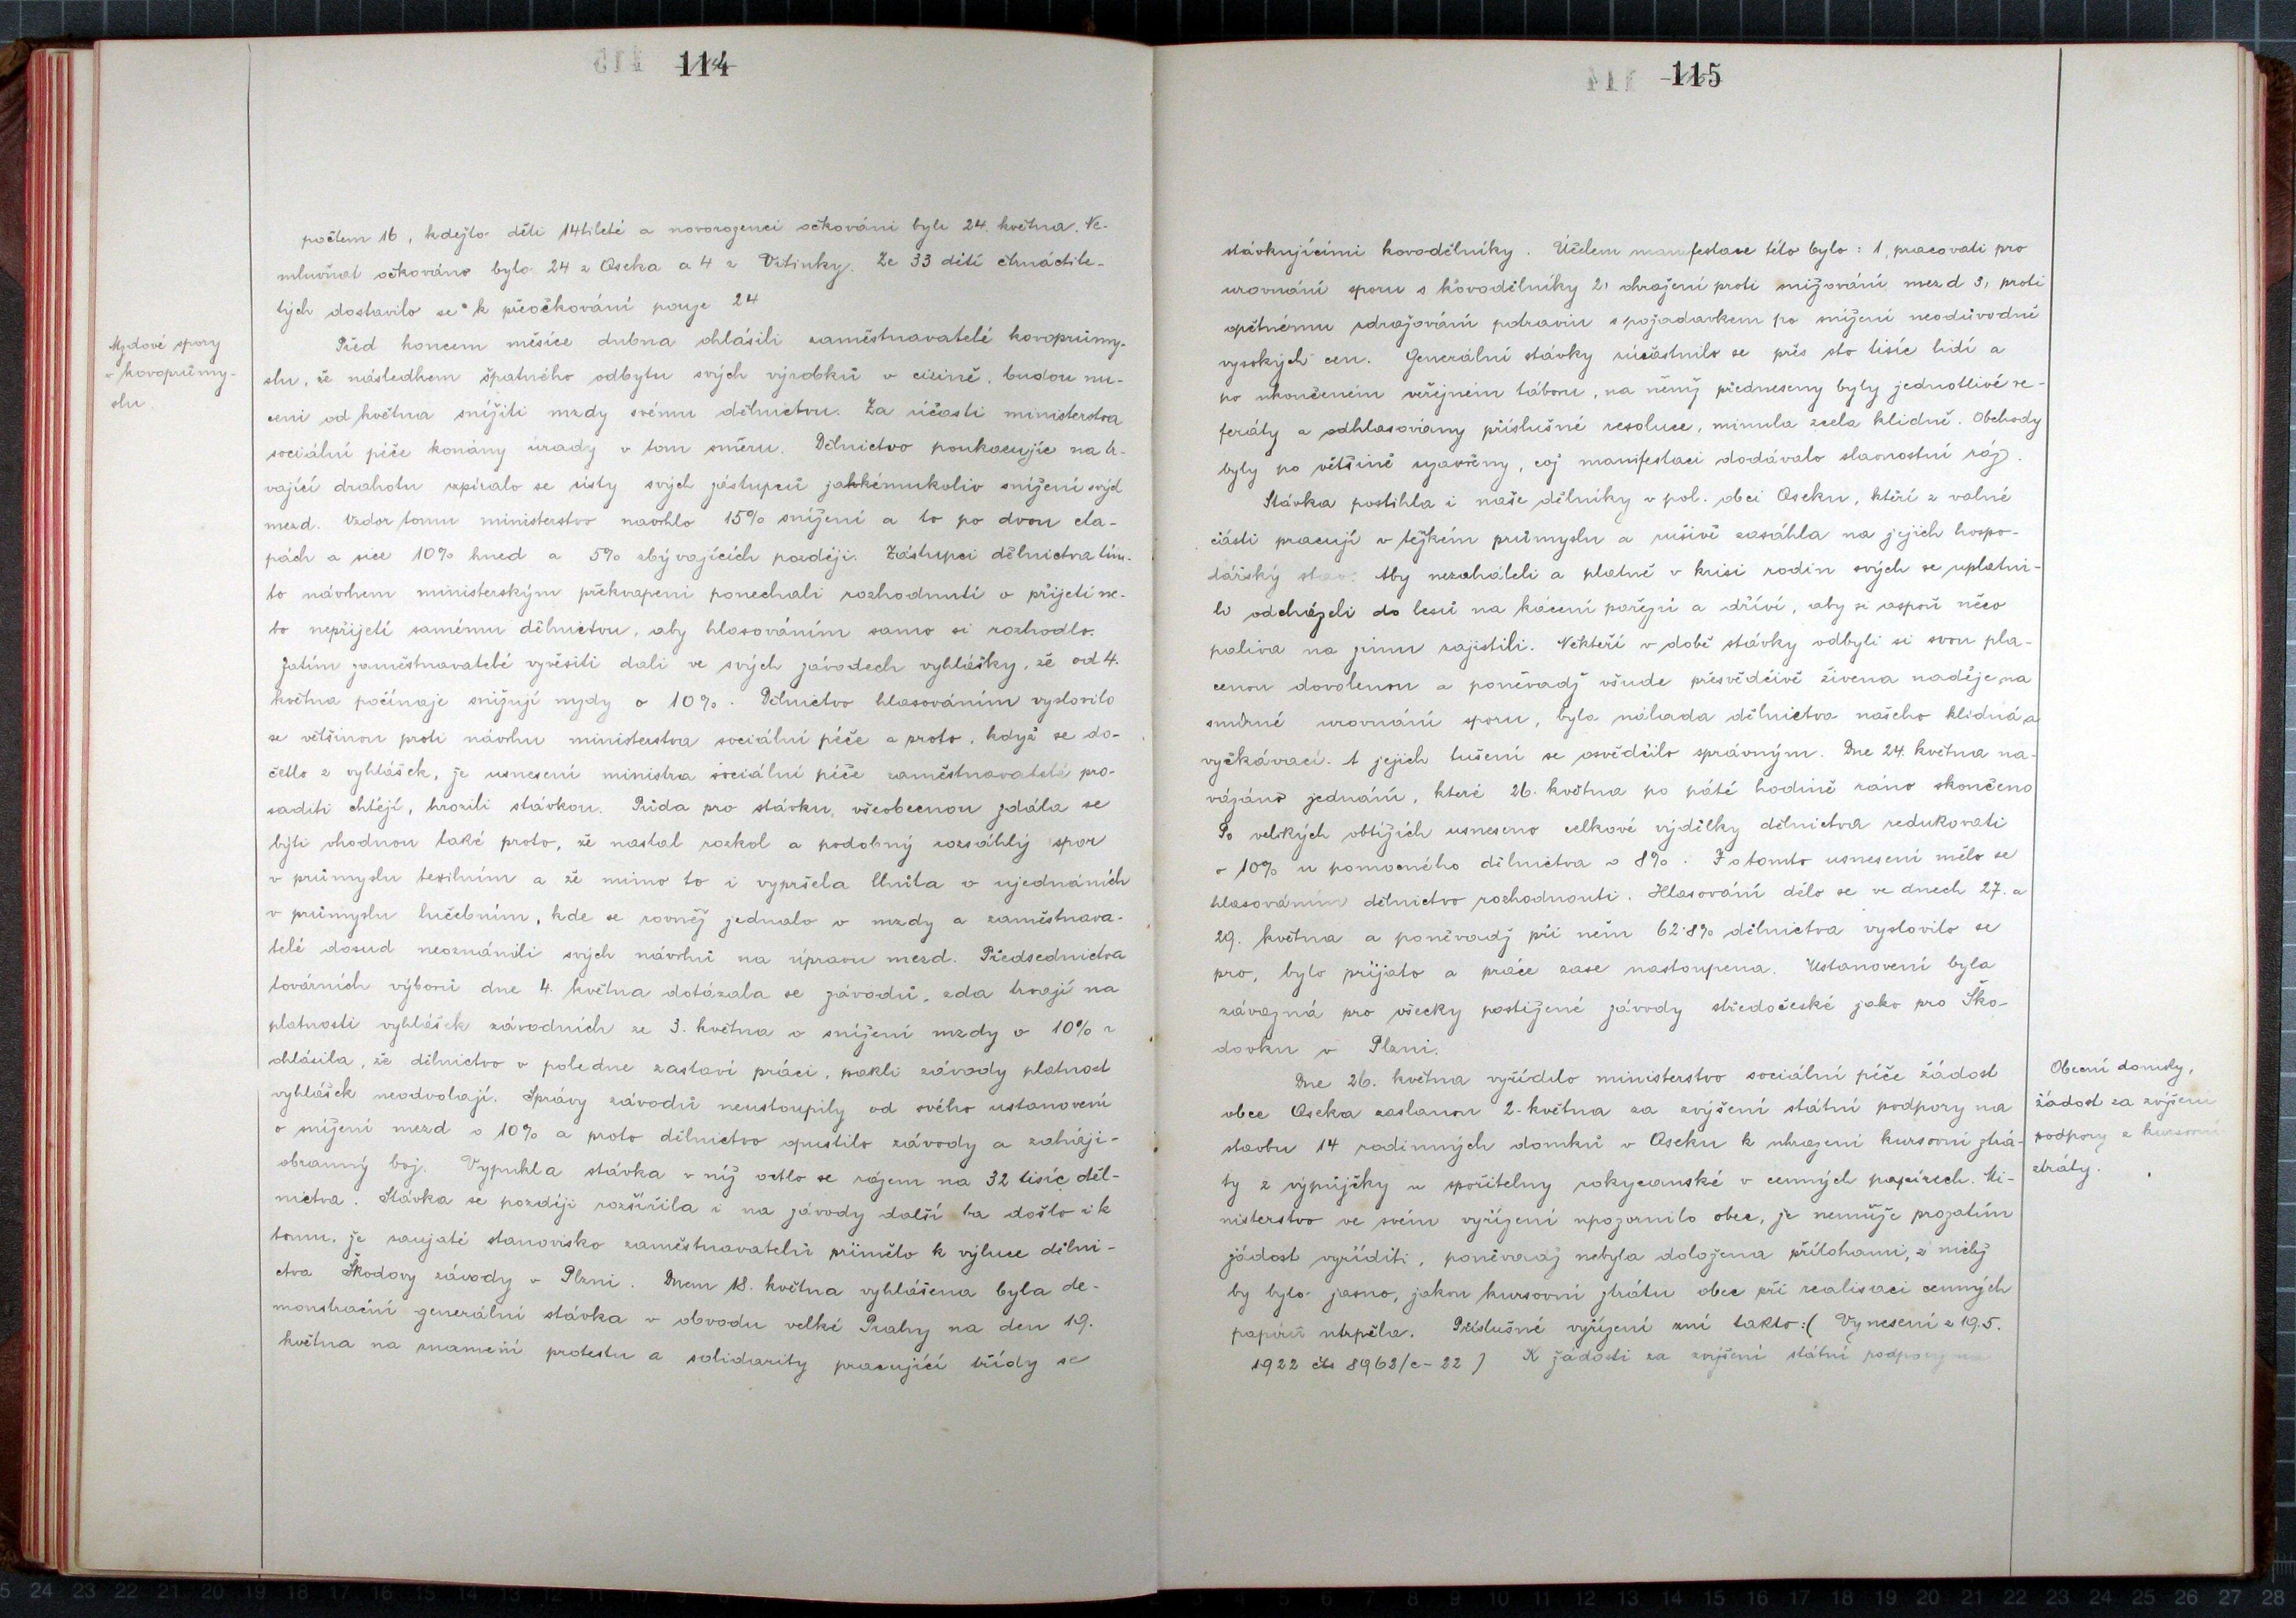 114
počtem 16, kdežto děti 14tileté a novorozenci očkováni byli 24. května. Ne-
mluvňat očkováno bylo 24 z Oseka a 4 z Vitinky. Ze 33 dětí čtrnáctile-
tých dostavilo se k přeočkování pouze 24
Mzdové spory
v kovoprůmy-
slu.
Před koncem měsíce dubna ohlásili zaměstnavatelé kovoprůmy-
slu, že následkem špatného odbytu svých výrobků v cizině, budou nu-
ceni od května snížiti mzdy svému dělnictvu. Za účasti ministerstva
sociální péče konány úrady v tom směru. Dělnictvo poukazujíc na tr-
vající drahotu vzpíralo se ústy svých zástupců jakémukoliv snížení svých
mezd. Vzdor tomu ministerstvo navrhlo 15% snížení a to po dvou eta-
pách a sice 10% hned a 5% zbývajících později. Zástupci dělnictva tím-
to návrhem ministerským překvapeni ponechali rozhodnutí o přijetí ne-
bo nepřijetí samému dělnictvu, aby hlasováním samo si rozhodlo.
Zatím zaměstnavatelé vyvěsiti dali ve svých závodech vyhlášky, že od 4.
května počínaje snižují mzdy o 10%. Dělnictvo hlasováním vyslovilo
se většinou proti návrhu ministerstva sociální péče a proto, když se do-
četlo z vyhlášek, že usnesení ministra sociální péče zaměstnavatelé pro-
saditi chtějí, hrozili stávkou. Půda pro stávku všeobecnou zdála se
býti vhodnou také proto, že nastal rozkol a podobný rozsáhlý spor
v průmyslu textilním a že mimo to i vypršela lhůta o ujednáních
v průmyslu lučebním, kde se rovněž jednalo o mzdy a zaměstnava-
telé dosud neoznámili svých návrhů na úpravu mezd. Předsednictva
továrních výborů dne 4. května dotázala se závodů, zda trvají na
platnosti vyhlášek závodních ze 3. května o snížení mzdy o 10% a
ohlásila, že dělnictvo v poledne zastaví práci, pakli závody platnost
vyhlášek neodvolají. Správy závodů neustoupily od svého ustanovení
o snížení mezd o 10% a proto dělnictvo opustilo závody a zaháji-
obranný boj. Vypukla stávka v níž octlo se rázem na 32 tisíc děl-
nictva. Stávka se později rozšířila i na závody další ba došlo i k
tomu, že zaujaté stanovisko zaměstnavatelů přimělo k výluce dělni-
ctva Škodovy závody v Plzni. Dnem 18. května vyhlášena byla de-
monstrační generální stávka v obvodu velké Prahy na den 19.
května na znamení protestu a solidarity pracující třídy se
115
stávkujícími kovodělníky. Účelem manifestace této bylo: 1, pracovati pro
urovnání sporu s kovodělníky 2, ohražení proti snižování mezd 3, proti
opětnému zdražování potravin s požadavkem po snížení neodůvodně
vysokých cen. Generální stávky súčastnilo se přes sto tisíc lidí a
po ukončeném veřejném táboru, na němž předneseny byly jednotlivé re-
feráty a odhlasovány příslušné resoluce, minula zcela klidně. Obchody
byly po většině uzavřeny, což manifestaci dodávalo slavnostní ráz.
Stávka postihla i naše dělníky v pol. obci Oseku, kteří z valné
části pracují v těžkém průmyslu a rušivě zasáhla na jejich hospo-
dářský stav. Aby nezaháleli a platně v krisi rodin svých se uplatni-
li odcházeli do lesů na kácení pařezí a dříví, aby si aspoň něco
paliva na zimu zajistili. Někteří v době stávky odbyli si svou pla-
cenou dovolenou a poněvadž všude přesvědčivě živena naděje na
smírné urovnání sporu, byla nálada dělnictva našeho klidná a
vyčkávací. A jejich tušení se osvědčilo správným. Dne 24. května na-
vázáno jednání, které 26. května po páté hodině ráno skončeno
Po velkých obtížích usneseno celkové výdělky dělnictva redukovati
o 10% u pomocného dělnictva o 8%. I o tomto usnesení mělo se
hlasováním dělnictvo rozhodnouti. Hlasování dělo se ve dnech 27. a
29. května a poněvadž při něm 62.8% dělnictva vyslovilo se
pro, bylo přijato a práce zase nastoupena. Ustanovení byla
závazná pro všecky postižené závody středočeské jako pro Ško-
dovku v Plzni.
Obecní domky,
žádost za zvýšení
podpory z kursovní
ztráty.
Dne 26. května vyřídilo ministerstvo sociální péče žádost
obce Oseka zaslanou 2. května za zvýšení státní podpory na
stavbu 14 rodinných domků v Oseku k uhrazení kursovní ztrá-
ty z výpůjčky u spořitelny rokycanské v cenných papírech. Mi-
nisterstvo ve svém vyřízení upozornilo obec, že nemůže prozatím
žádost vyříditi, poněvadž nebyla doložena přílohami, z nichž
by bylo jasno, jakou kursovní ztrátu obec při realisaci cenných
papírů utrpěla. Příslušné vyřízení zní takto: (Vynesení z 19.5.
1922 čís 8962/c-22) K žádosti za zvýšení státní podpory na